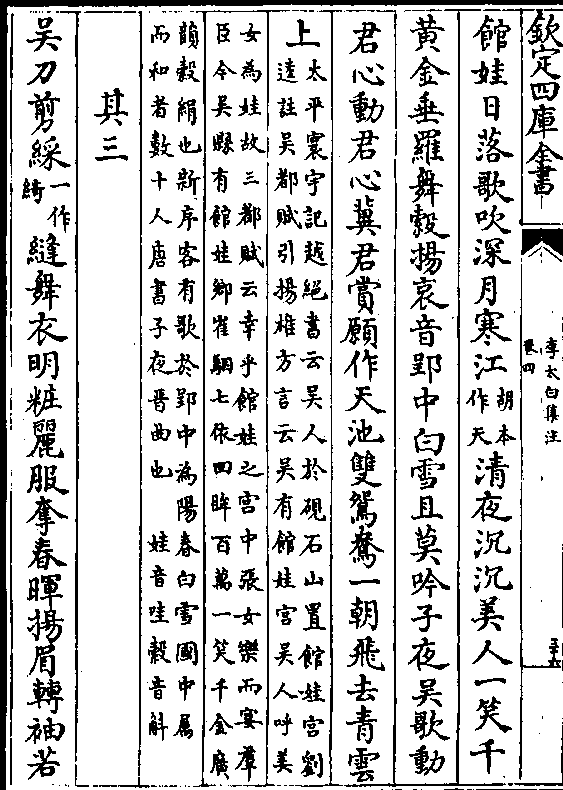 欽定四庫全書
李太白集注
卷四
館娃日落歌吹深月寒江胡本作天清夜沉沉美人一笑千
黄金垂羅舞縠揚哀音郢中白雪且莫吟子夜吳歌動
君心動君心冀君賞願作天池雙鴛鴦一朝飛去青雲
上太平寰宇記越絕書云吳人於硯石山置館娃宫劉
逵註吳都賦引揚雄方言云吳有館娃宫吳人呼美
女為娃故三都賦云幸乎館娃之宫中張女樂而宴羣
臣今吳縣有館娃鄉崔駰七依回眸百萬一笑千金廣
韻縠絹也新序客有歌於郢中為陽春白雪國中屬
而和者數十人唐書子夜晉曲也　娃音哇縠音斛
其三
吳刀剪綵一作綺縫舞衣明粧麗服奪春暉揚眉轉袖若